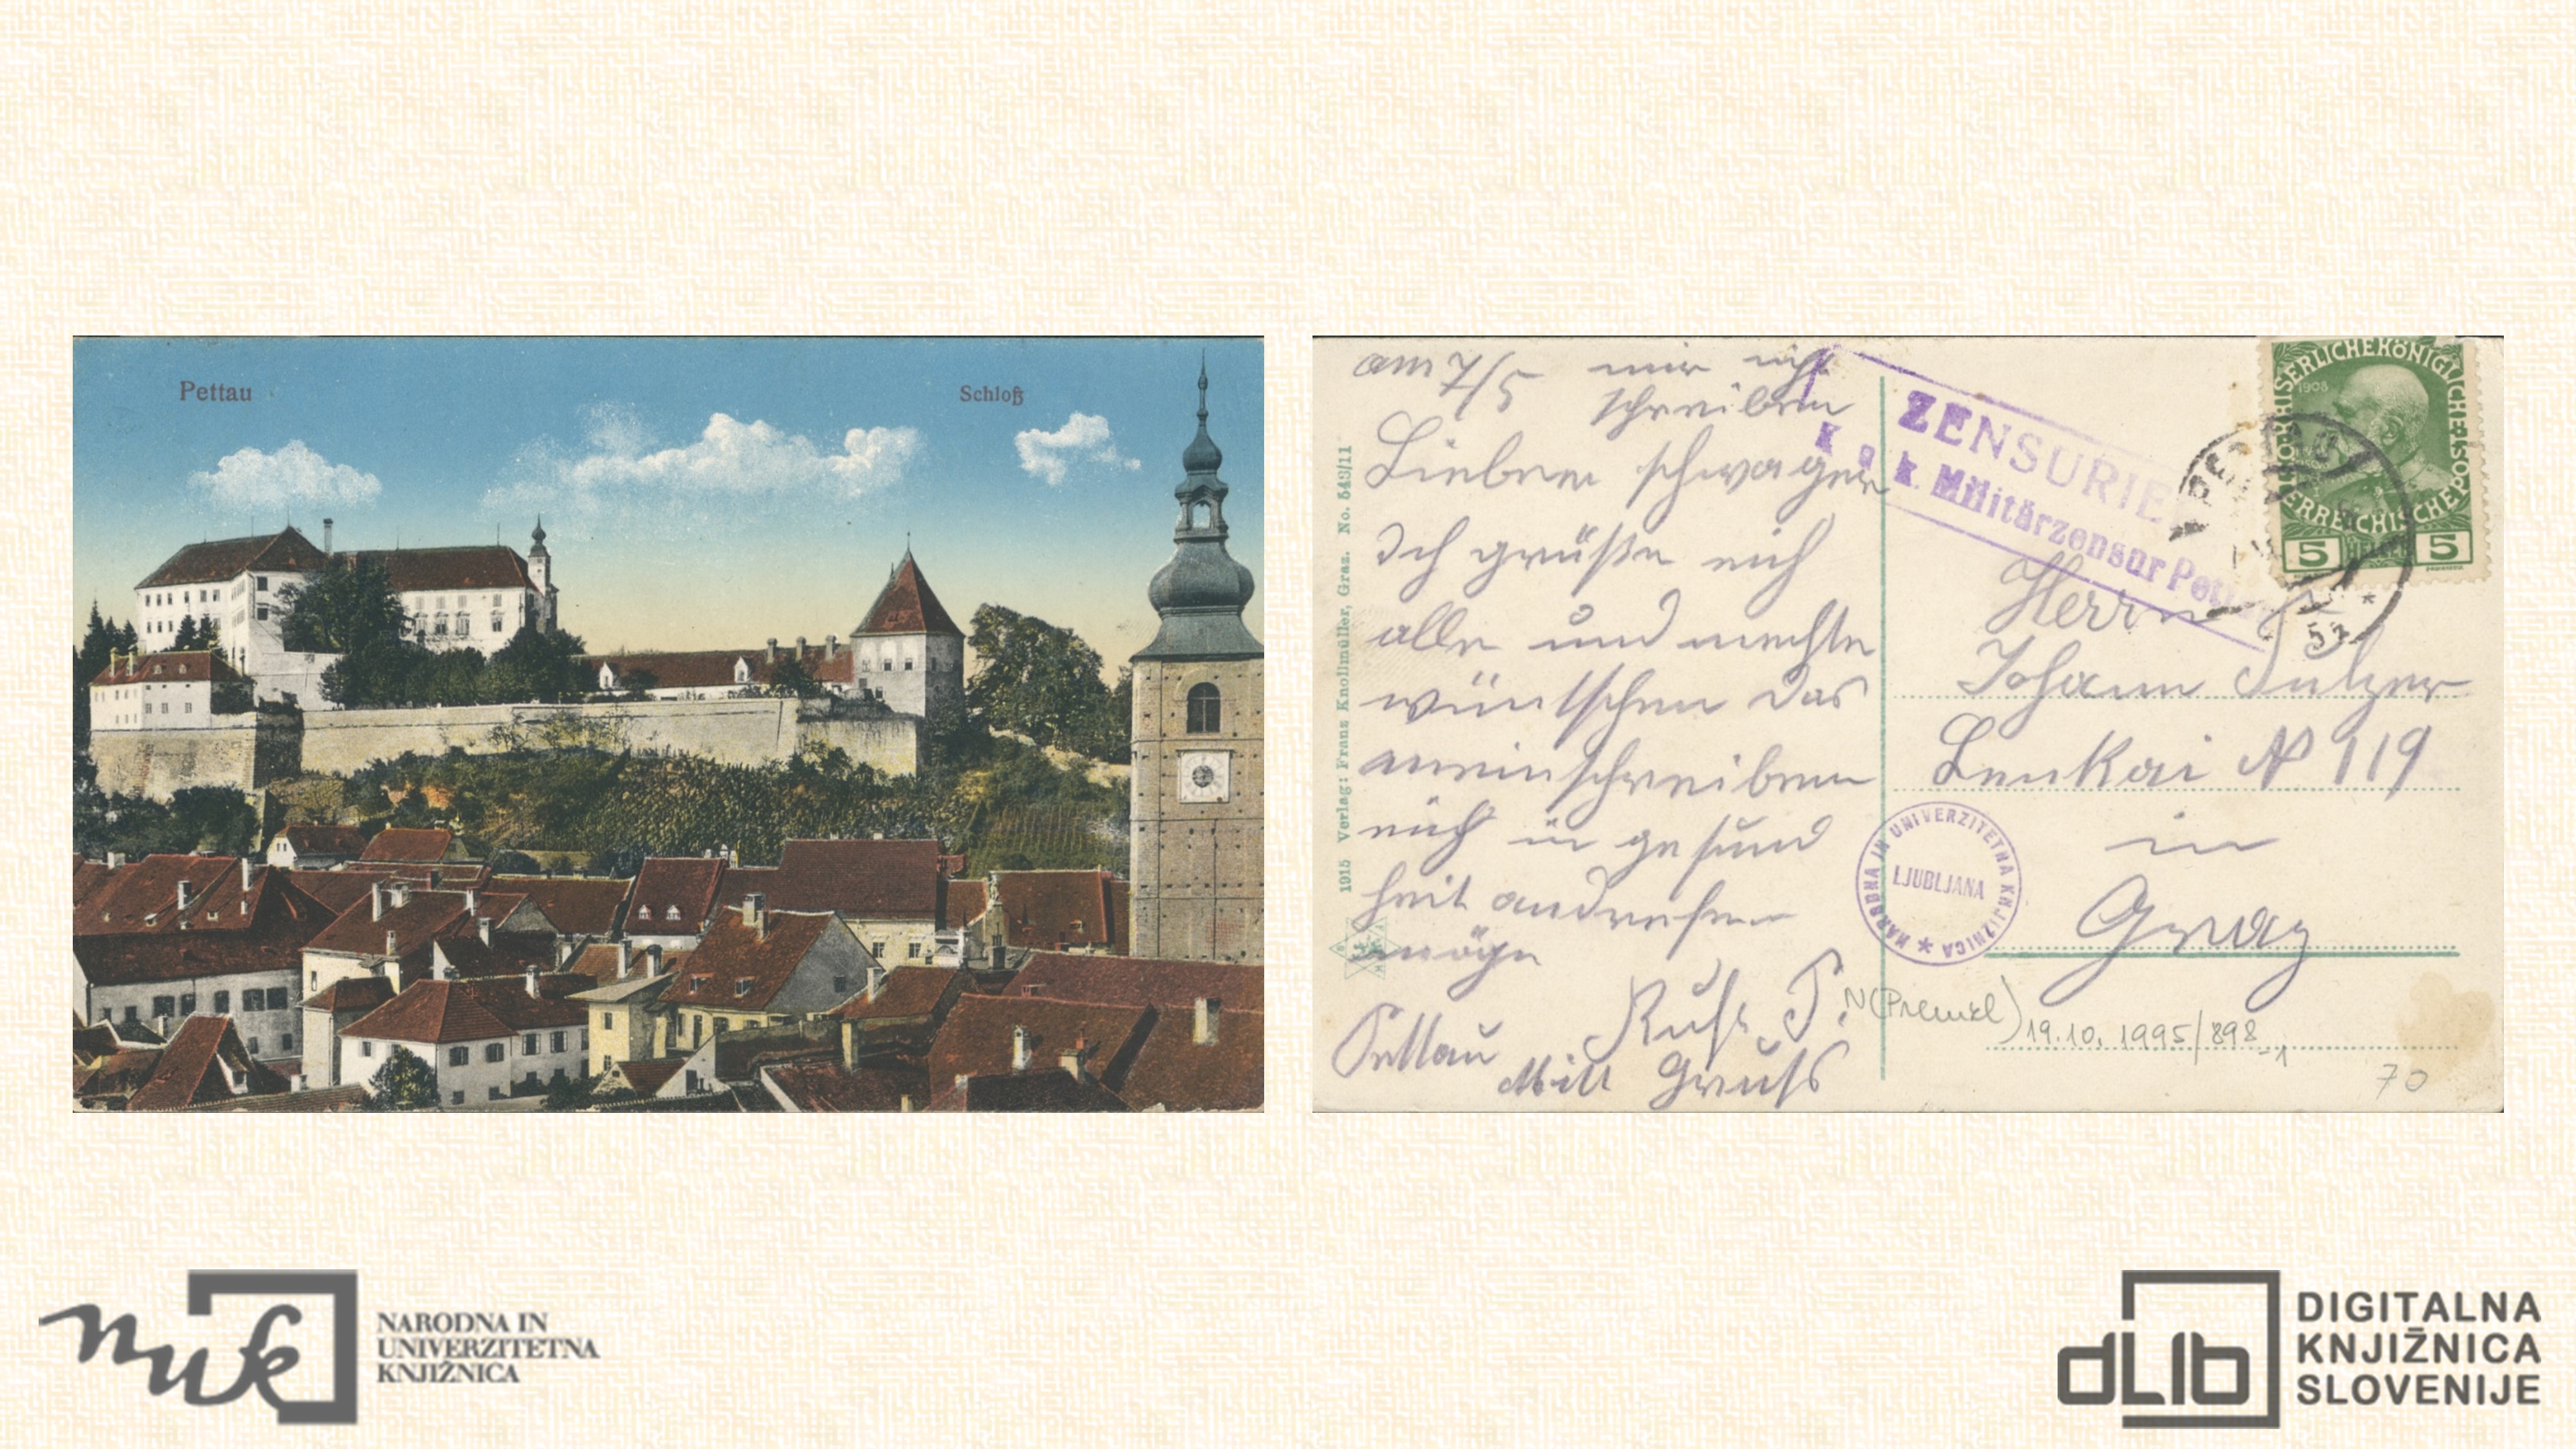 Pettau
Schloß
am 7/5
mir nicht
schreiben
Lieber schwager
Ich grüße euch
alle und mechte
wüntschen das
mein schreiben
euch in gesund
heit andrefen
möge
Pettau
Mitt Gruß
1915 Verlag: Franz Knollmüller, Graz. No. 543/11
ZENSURIE
K. u. k. Militärzensur Pettau
KAISERLICHE KÖNIGLICHE ÖSTERREICHISCHE POST
1908
5 HELLER 5
Herrn
Johann Sulzer
Lenkai N 119
in
Graz
NARODNA IN UNIVERZITETNA KNJIŽNICA
LJUBLJANA
N (Premkl)
19.10.1995/898-1
70
nuk
NARODNA IN
UNIVERZITETNA
KNJIŽNICA
dLib
DIGITALNA
KNJIŽNICA
SLOVENIJE